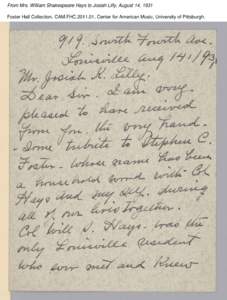 From Mrs. William Shakespeare Hays to Josiah Lilly, August 14, 1931
Foster Hall Collection, CAM.FHC.2011.01, Center for American Music, University of Pittsburgh.
919. South Fourth Ave.
Louisville Aug 14/1931
Mr. Josiah K. Lilly.
Dear Sir. I am very
pleased to have received
from you. the very hand-
some tribute to Stephen C.
Foster. Whose name has been
a household word with Col
Hays and my self, during
all of our lives together.
Col Will S. Hays. was the
only Louisville resident
who ever met and knew